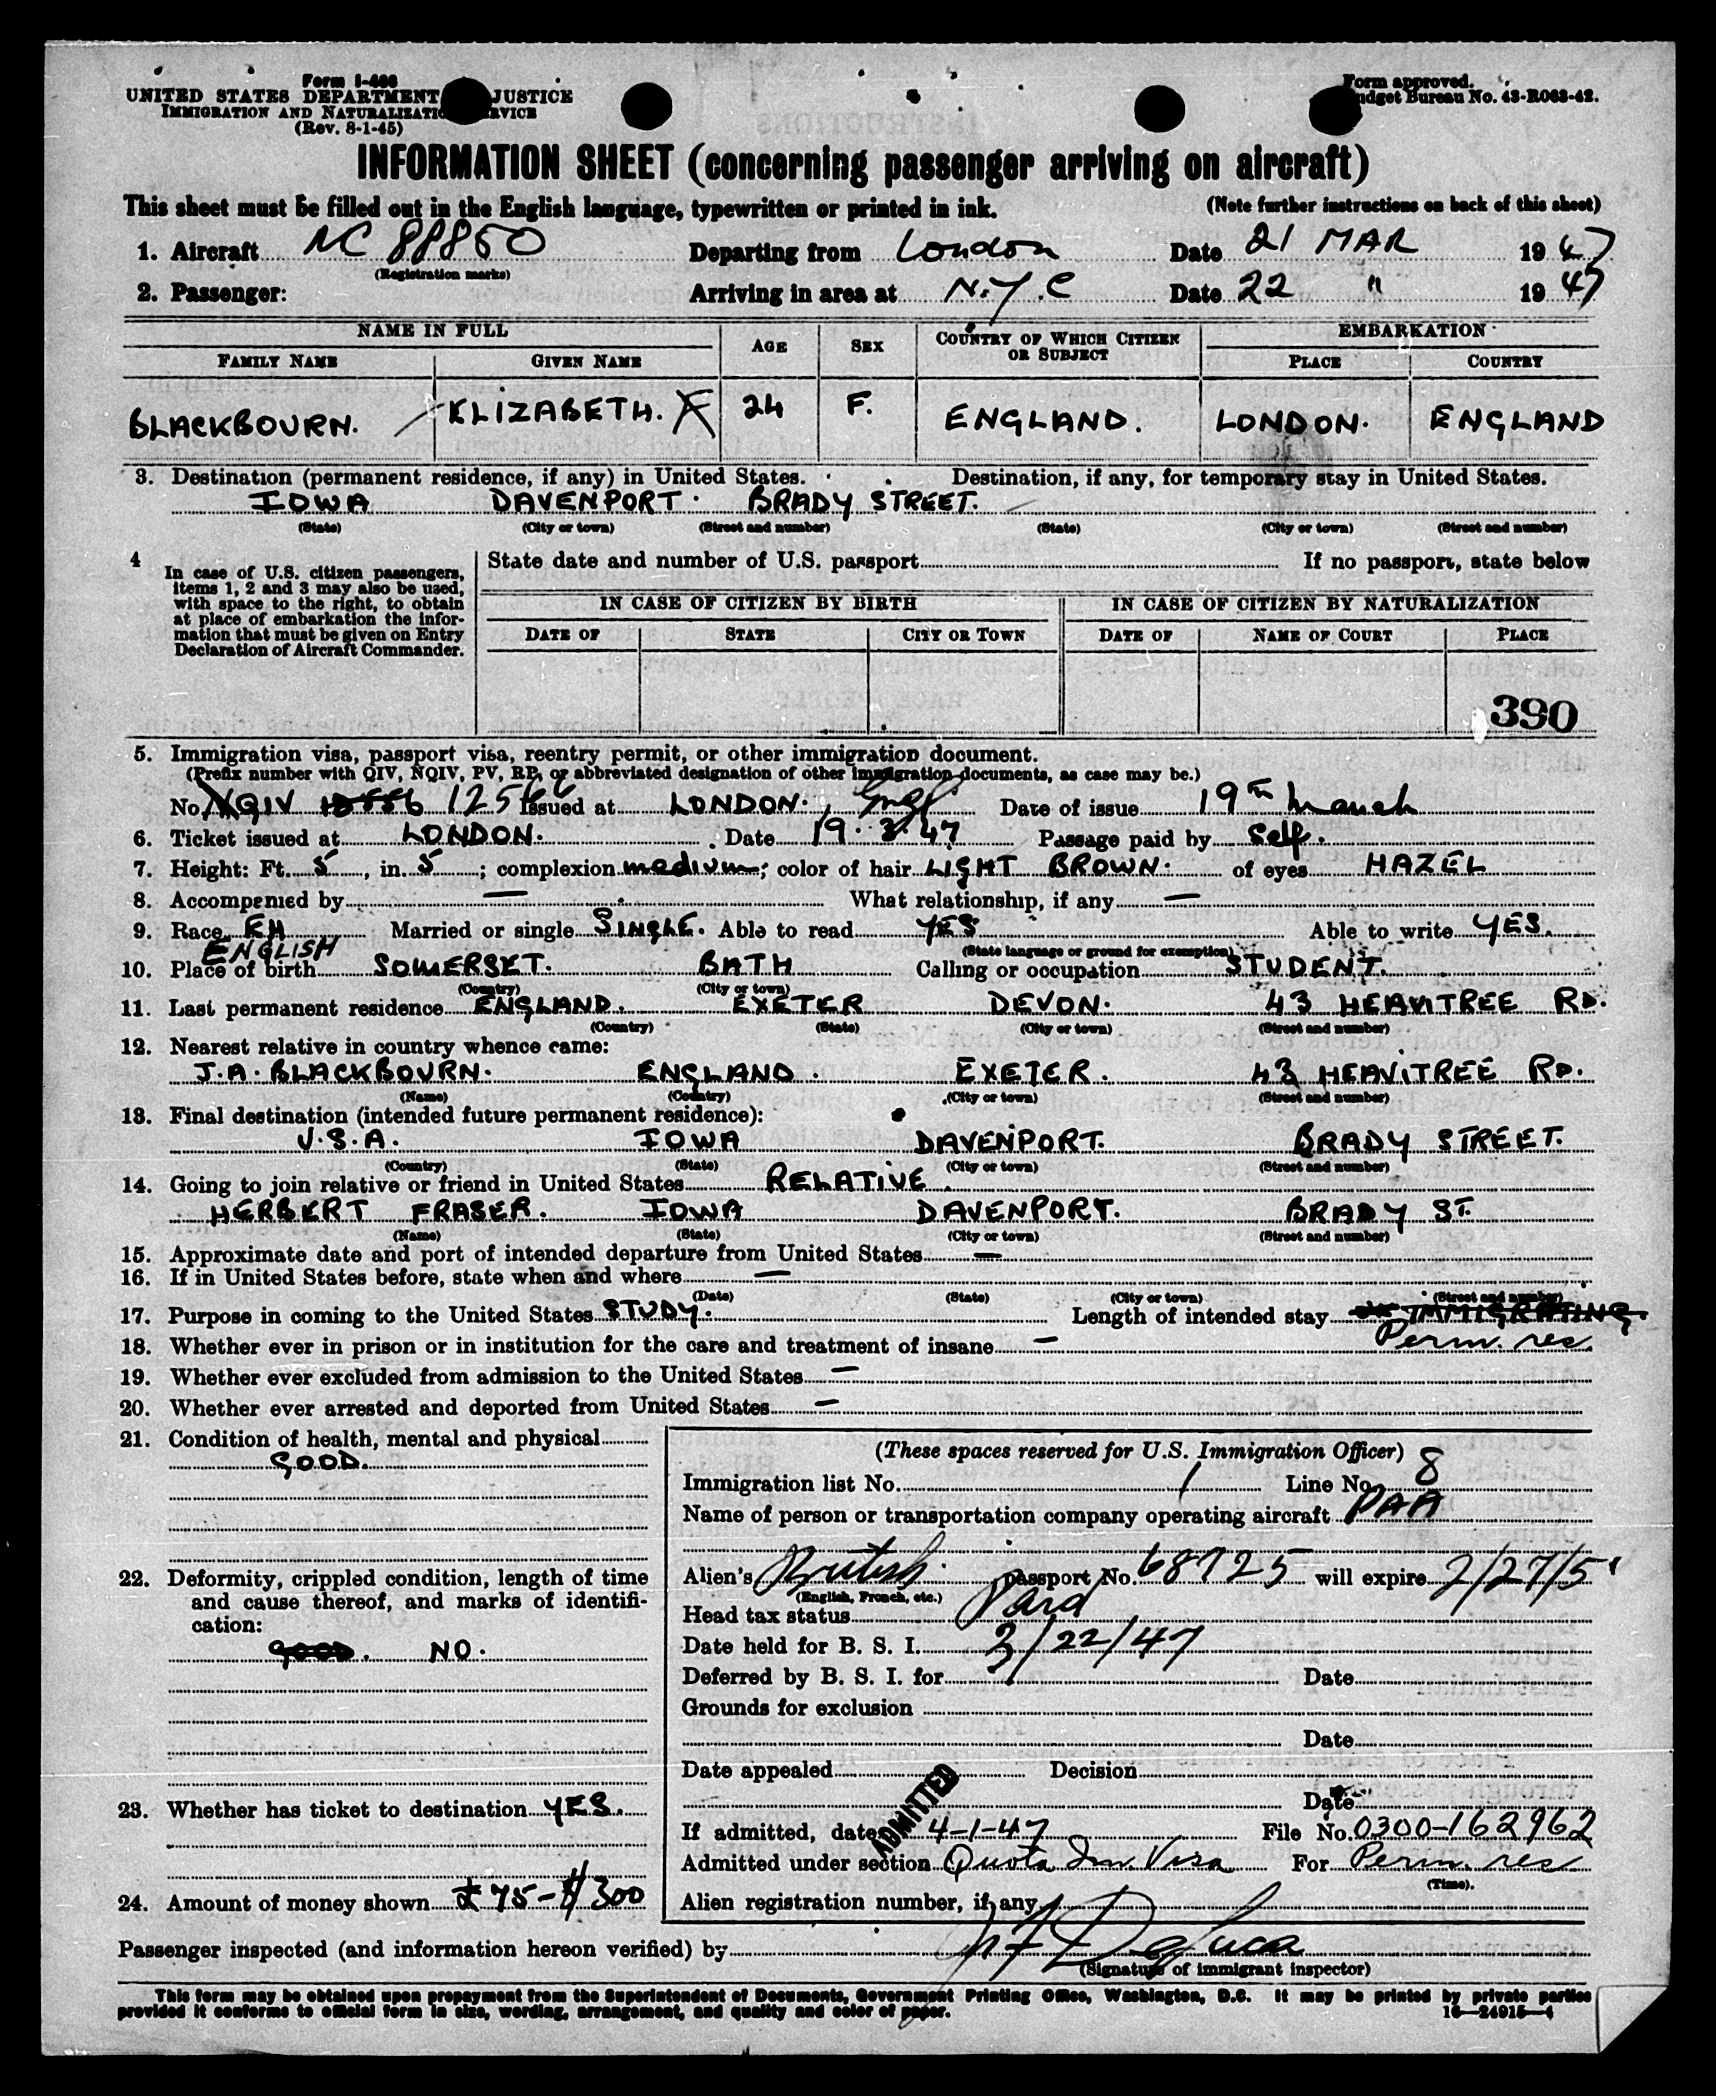 Form I-466
UNITED STATES DEPARTMENT JUSTICE
IMMIGRATION AND NATURALIZATION SERVICE
(Rev. 8-1-45)
Form approved.
Budget Bureau No. 43-R063-42.
INFORMATION SHEET (concerning passenger arriving on aircraft)
This sheet must be filled out in the English language, typewritten or printed in ink. (Note further instructions on back of this sheet)
1. Aircraft NC 88850 Departing from London Date 21 MAR 1947
(Registration marks)
2. Passenger: Arriving in area at N.Y.C Date 22 " 1947
NAME IN FULL AGE SEX COUNTRY OF WHICH CITIZEN OR SUBJECT EMBARKATION
FAMILY NAME GIVEN NAME PLACE COUNTRY
BLACKBOURN. ELIZABETH. 24 F. ENGLAND. LONDON. ENGLAND
3. Destination (permanent residence, if any) in United States. Destination, if any, for temporary stay in United States.
IOWA DAVENPORT. BRADY STREET.
(State) (City or town) (Street and number) (State) (City or town) (Street and number)
4 In case of U.S. citizen passengers,
items 1, 2 and 3 may also be used,
with space to the right, to obtain
at place of embarkation the infor-
mation that must be given on Entry
Declaration of Aircraft Commander.
State date and number of U.S. passport If no passport, state below
IN CASE OF CITIZEN BY BIRTH IN CASE OF CITIZEN BY NATURALIZATION
DATE OF STATE CITY OR TOWN DATE OF NAME OF COURT PLACE
390
5. Immigration visa, passport visa, reentry permit, or other immigration document.
(Prefix number with QIV, NQIV, PV, RP, or abbreviated designation of other immigration documents, as case may be.)
No. QIV 12566 Issued at LONDON. Eng. Date of issue 19TH March
6. Ticket issued at LONDON. Date 19.3.47 Passage paid by Self.
7. Height: Ft. 5, in. 5; complexion medium; color of hair LIGHT BROWN. of eyes HAZEL
8. Accompanied by — What relationship, if any —
9. Race ENGLISH Married or single SINGLE. Able to read YES Able to write YES.
(State language or ground for exemption)
10. Place of birth SOMERSET. BATH Calling or occupation STUDENT.
(Country) (City or town)
11. Last permanent residence ENGLAND. EXETER DEVON. 43 HEAVITREE RD.
(Country) (State) (City or town) (Street and number)
12. Nearest relative in country whence came:
J.A. BLACKBOURN. ENGLAND. EXETER. 43 HEAVITREE RD.
(Name) (Country) (City or town) (Street and number)
13. Final destination (intended future permanent residence):
U.S.A. IOWA DAVENPORT. BRADY STREET.
(Country) (State) (City or town) (Street and number)
14. Going to join relative or friend in United States RELATIVE.
HERBERT FRASER. IOWA DAVENPORT. BRADY ST.
(Name) (State) (City or town) (Street and number)
15. Approximate date and port of intended departure from United States —
16. If in United States before, state when and where —
(Date) (State) (City or town) (Street and number)
17. Purpose in coming to the United States STUDY. Length of intended stay IMMIGRATING.
Perm. res
18. Whether ever in prison or in institution for the care and treatment of insane —
19. Whether ever excluded from admission to the United States —
20. Whether ever arrested and deported from United States —
21. Condition of health, mental and physical
GOOD.
22. Deformity, crippled condition, length of time
and cause thereof, and marks of identifi-
cation:
GOOD. NO.
23. Whether has ticket to destination YES.
24. Amount of money shown £75-$300
(These spaces reserved for U.S. Immigration Officer)
Immigration list No. 1 Line No. 8
Name of person or transportation company operating aircraft PAA
Alien's British passport No. 68725 will expire 2/27/5
(English, French, etc.)
Head tax status Paid
Date held for B. S. I. 3/22/47
Deferred by B. S. I. for Date
Grounds for exclusion
Date
Date appealed Decision
Date
ADMITTED
If admitted, date 4-1-47 File No. 0300-162962
Admitted under section Quota Im. Visa For Perm. res
(Time).
Alien registration number, if any
Passenger inspected (and information hereon verified) by
(Signature of immigrant inspector)
This form may be obtained upon prepayment from the Superintendent of Documents, Government Printing Office, Washington, D.C. It may be printed by private parties
provided it conforms to official form in size, wording, arrangement, and quality and color of paper. 16—24915—4